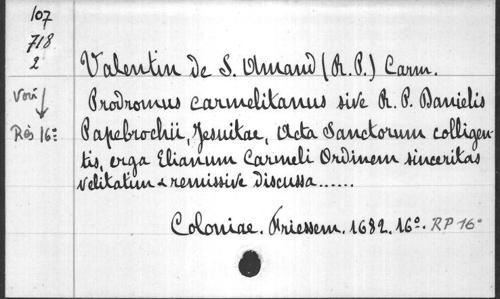 107
718
2
Valentin de S. Amand (R.P.) Carm.
Voir
Prodromus carmelitanus sive R. P. Danielis
Rés 16º
Papebrochii, Jesuitae, Acta Sanctorum colligen-
tis, erga Elianum Carmeli Ordinem sinceritas
velitatim & remissive discussa......
Coloniae. Friessem. 1682. 16º. RP 16º